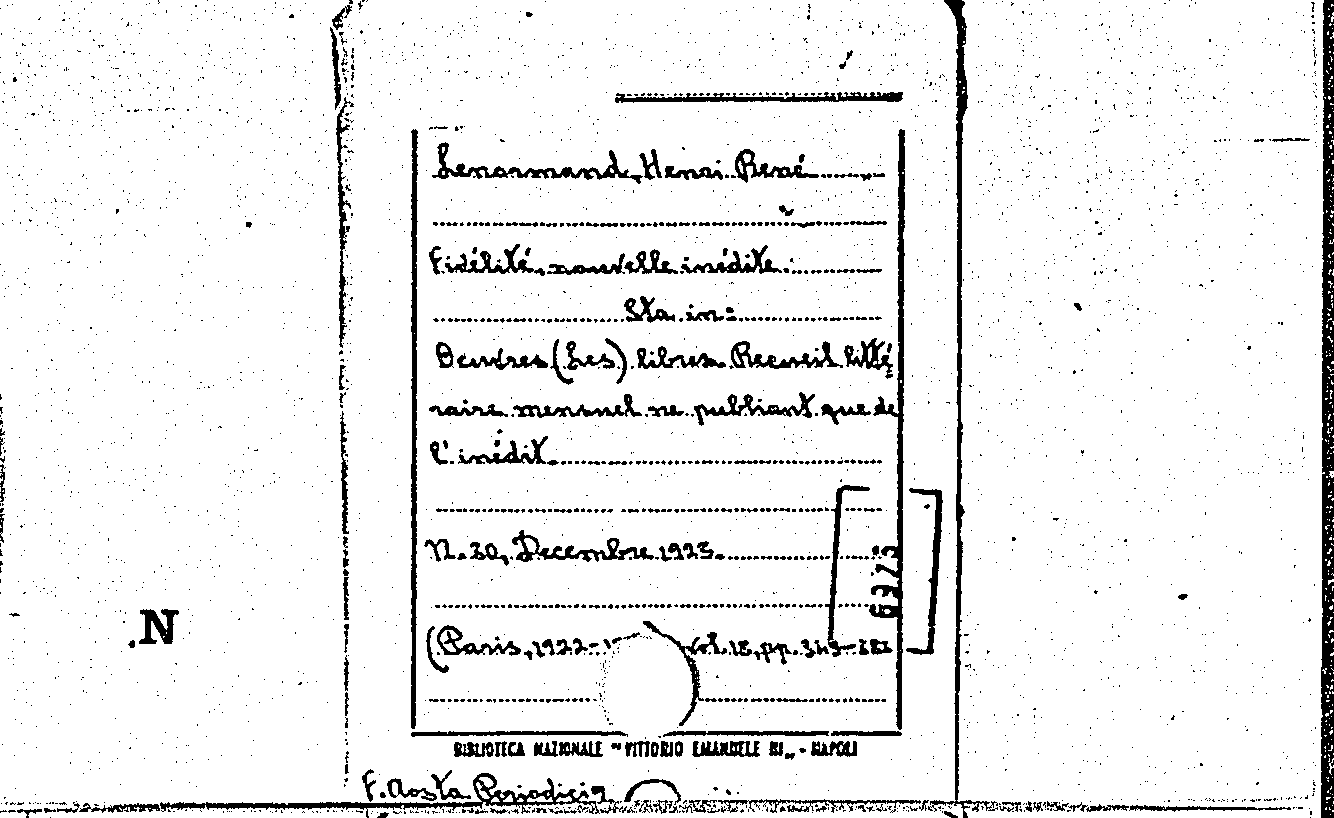 Lenormand, Henri René
Fidélité, nouvelle inédite.
Sta in:
Oeuvres (Les) libres. Recueil litté
raire mensuel ne publiant que de
l'inédit.
N. 30, Decembre 1923.
(Paris, 1922-1 vol. 18, pp. 343-
6975
N
BIBLIOTECA NAZIONALE "VITTORIO EMANUELE III„ - NAPOLI
F. Aosta Periodici